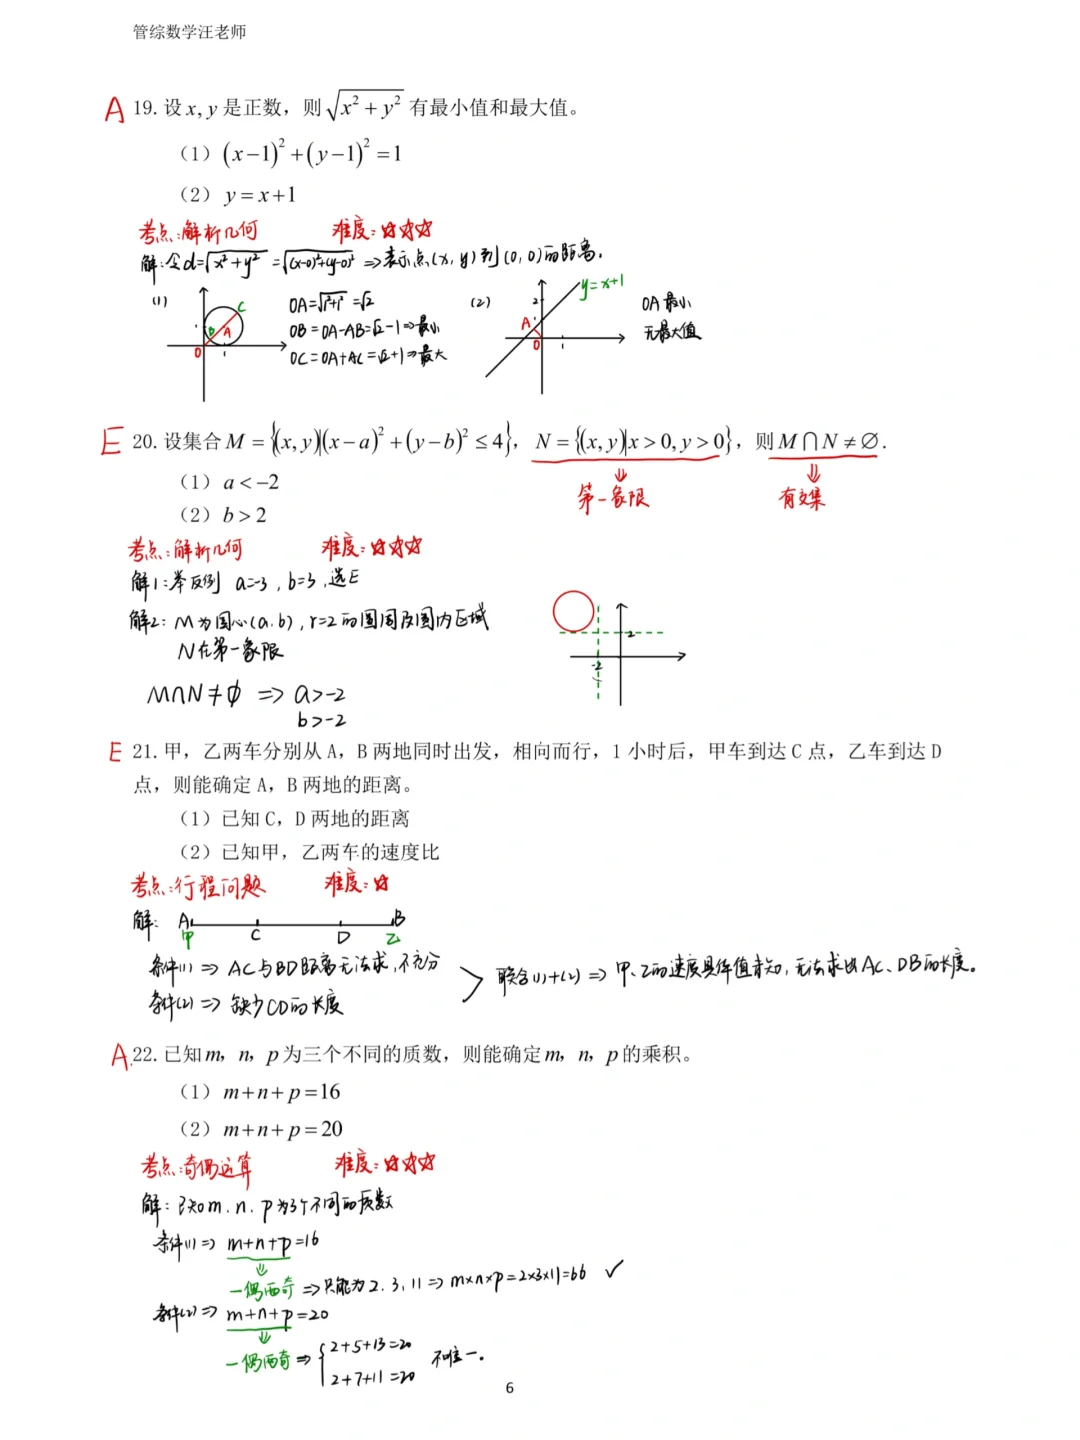 管综数学汪老师
A 19. 设 x, y 是正数，则 √(x²+y²) 有最小值和最大值。
（1）(x−1)²+(y−1)²=1
（2）y=x+1
考点:解析几何 难度:☆☆☆
解:令d=√(x²+y²)=√((x-0)²+(y-0)²)⇒表示点(x,y)到(0,0)的距离.
(1) C B A O 1 1
OA=√(1²+1²)=√2
OB=OA-AB=√2-1⇒最小
OC=OA+AC=√2+1⇒最大
(2) y=x+1 2 A O 1
OA最小
无最大值
E 20. 设集合 M={(x,y)|(x−a)²+(y−b)²≤4}，N={(x,y)|x>0,y>0}，则 M∩N≠∅.
⇓ ⇓
第一象限 有交集
（1）a<−2
（2）b>2
考点:解析几何 难度:☆☆☆
解1:举反例 a=-3, b=3,选E
解2: M为圆心(a.b), r=2的圆周及圆内区域
N在第一象限
2
-2
M∩N≠∅ ⇒ a>-2
b>-2
E 21. 甲，乙两车分别从 A，B 两地同时出发，相向而行，1 小时后，甲车到达 C 点，乙车到达 D
点，则能确定 A，B 两地的距离。
（1）已知 C，D 两地的距离
（2）已知甲，乙两车的速度比
考点:行程问题 难度:☆
解: A B
甲 C D 乙
条件(1)⇒AC与BD距离无法求,不充分
联合(1)+(2)⇒甲、乙的速度具体值未知,无法求出AC、DB的长度。
条件(2)⇒缺少CD的长度
A 22. 已知 m，n，p 为三个不同的质数，则能确定 m，n，p 的乘积。
（1）m+n+p=16
（2）m+n+p=20
考点:奇偶运算 难度:☆☆☆
解:已知m.n.p为3个不同的质数
条件(1)⇒ m+n+p=16
⇓
一偶两奇 ⇒只能为2.3.11⇒m×n×p=2×3×11=66 ✓
条件(2)⇒ m+n+p=20
⇓
一偶两奇⇒{2+5+13=20 不唯一.
2+7+11=20
6